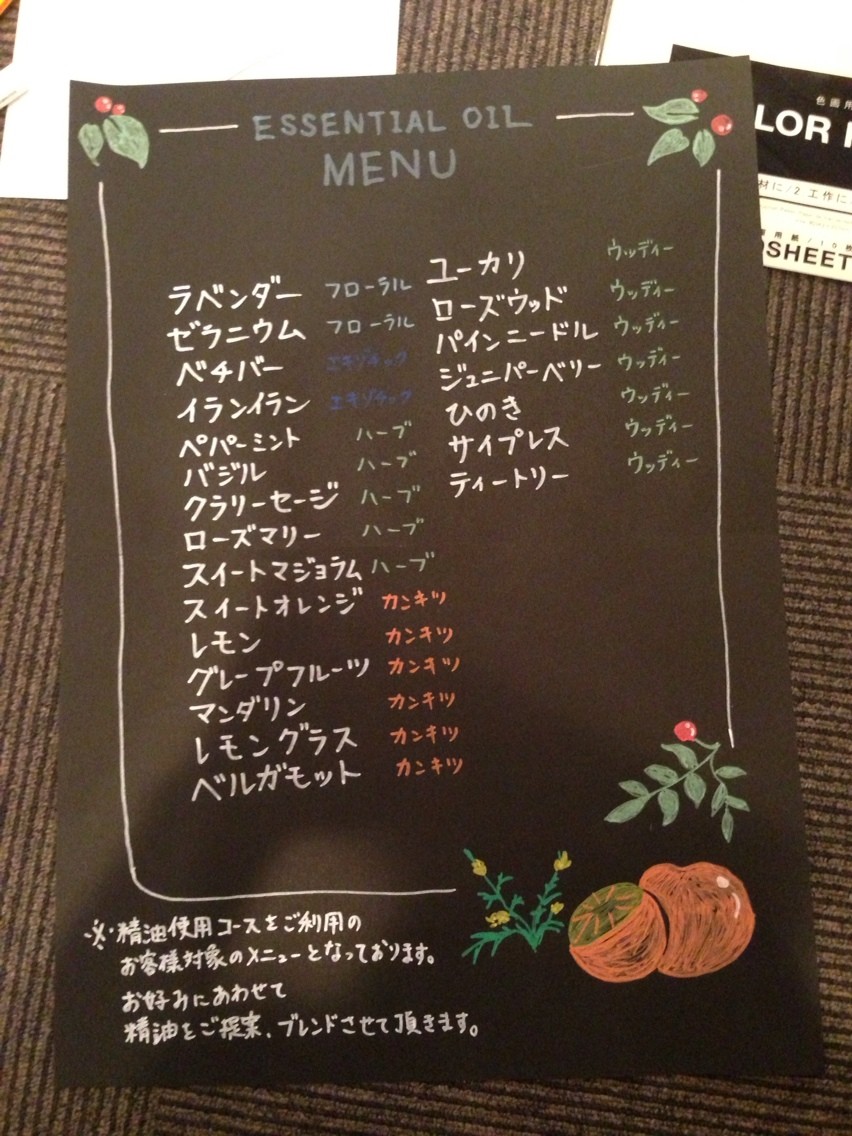 ESSENTIAL OIL
MENU
ラベンダー フローラル
ゼラニウム フローラル
ベチバー エキゾチック
イランイラン エキゾチック
ペパーミント ハーブ
バジル ハーブ
クラリーセージ ハーブ
ローズマリー ハーブ
スイートマジョラム ハーブ
スイートオレンジ カンキツ
レモン カンキツ
グレープフルーツ カンキツ
マンダリン カンキツ
レモングラス カンキツ
ベルガモット カンキツ
ユーカリ ウッディー
ローズウッド ウッディー
パインニードル ウッディー
ジュニパーベリー ウッディー
ひのき ウッディー
サイプレス ウッディー
ティートリー ウッディー
※・精油使用コースをご利用の
お客様対象のメニューとなっております。
お好みにあわせて
精油をご提案、ブレンドさせて頂きます。
色画用
LOR
材に/2 工作に
用紙/10枚
SHEET